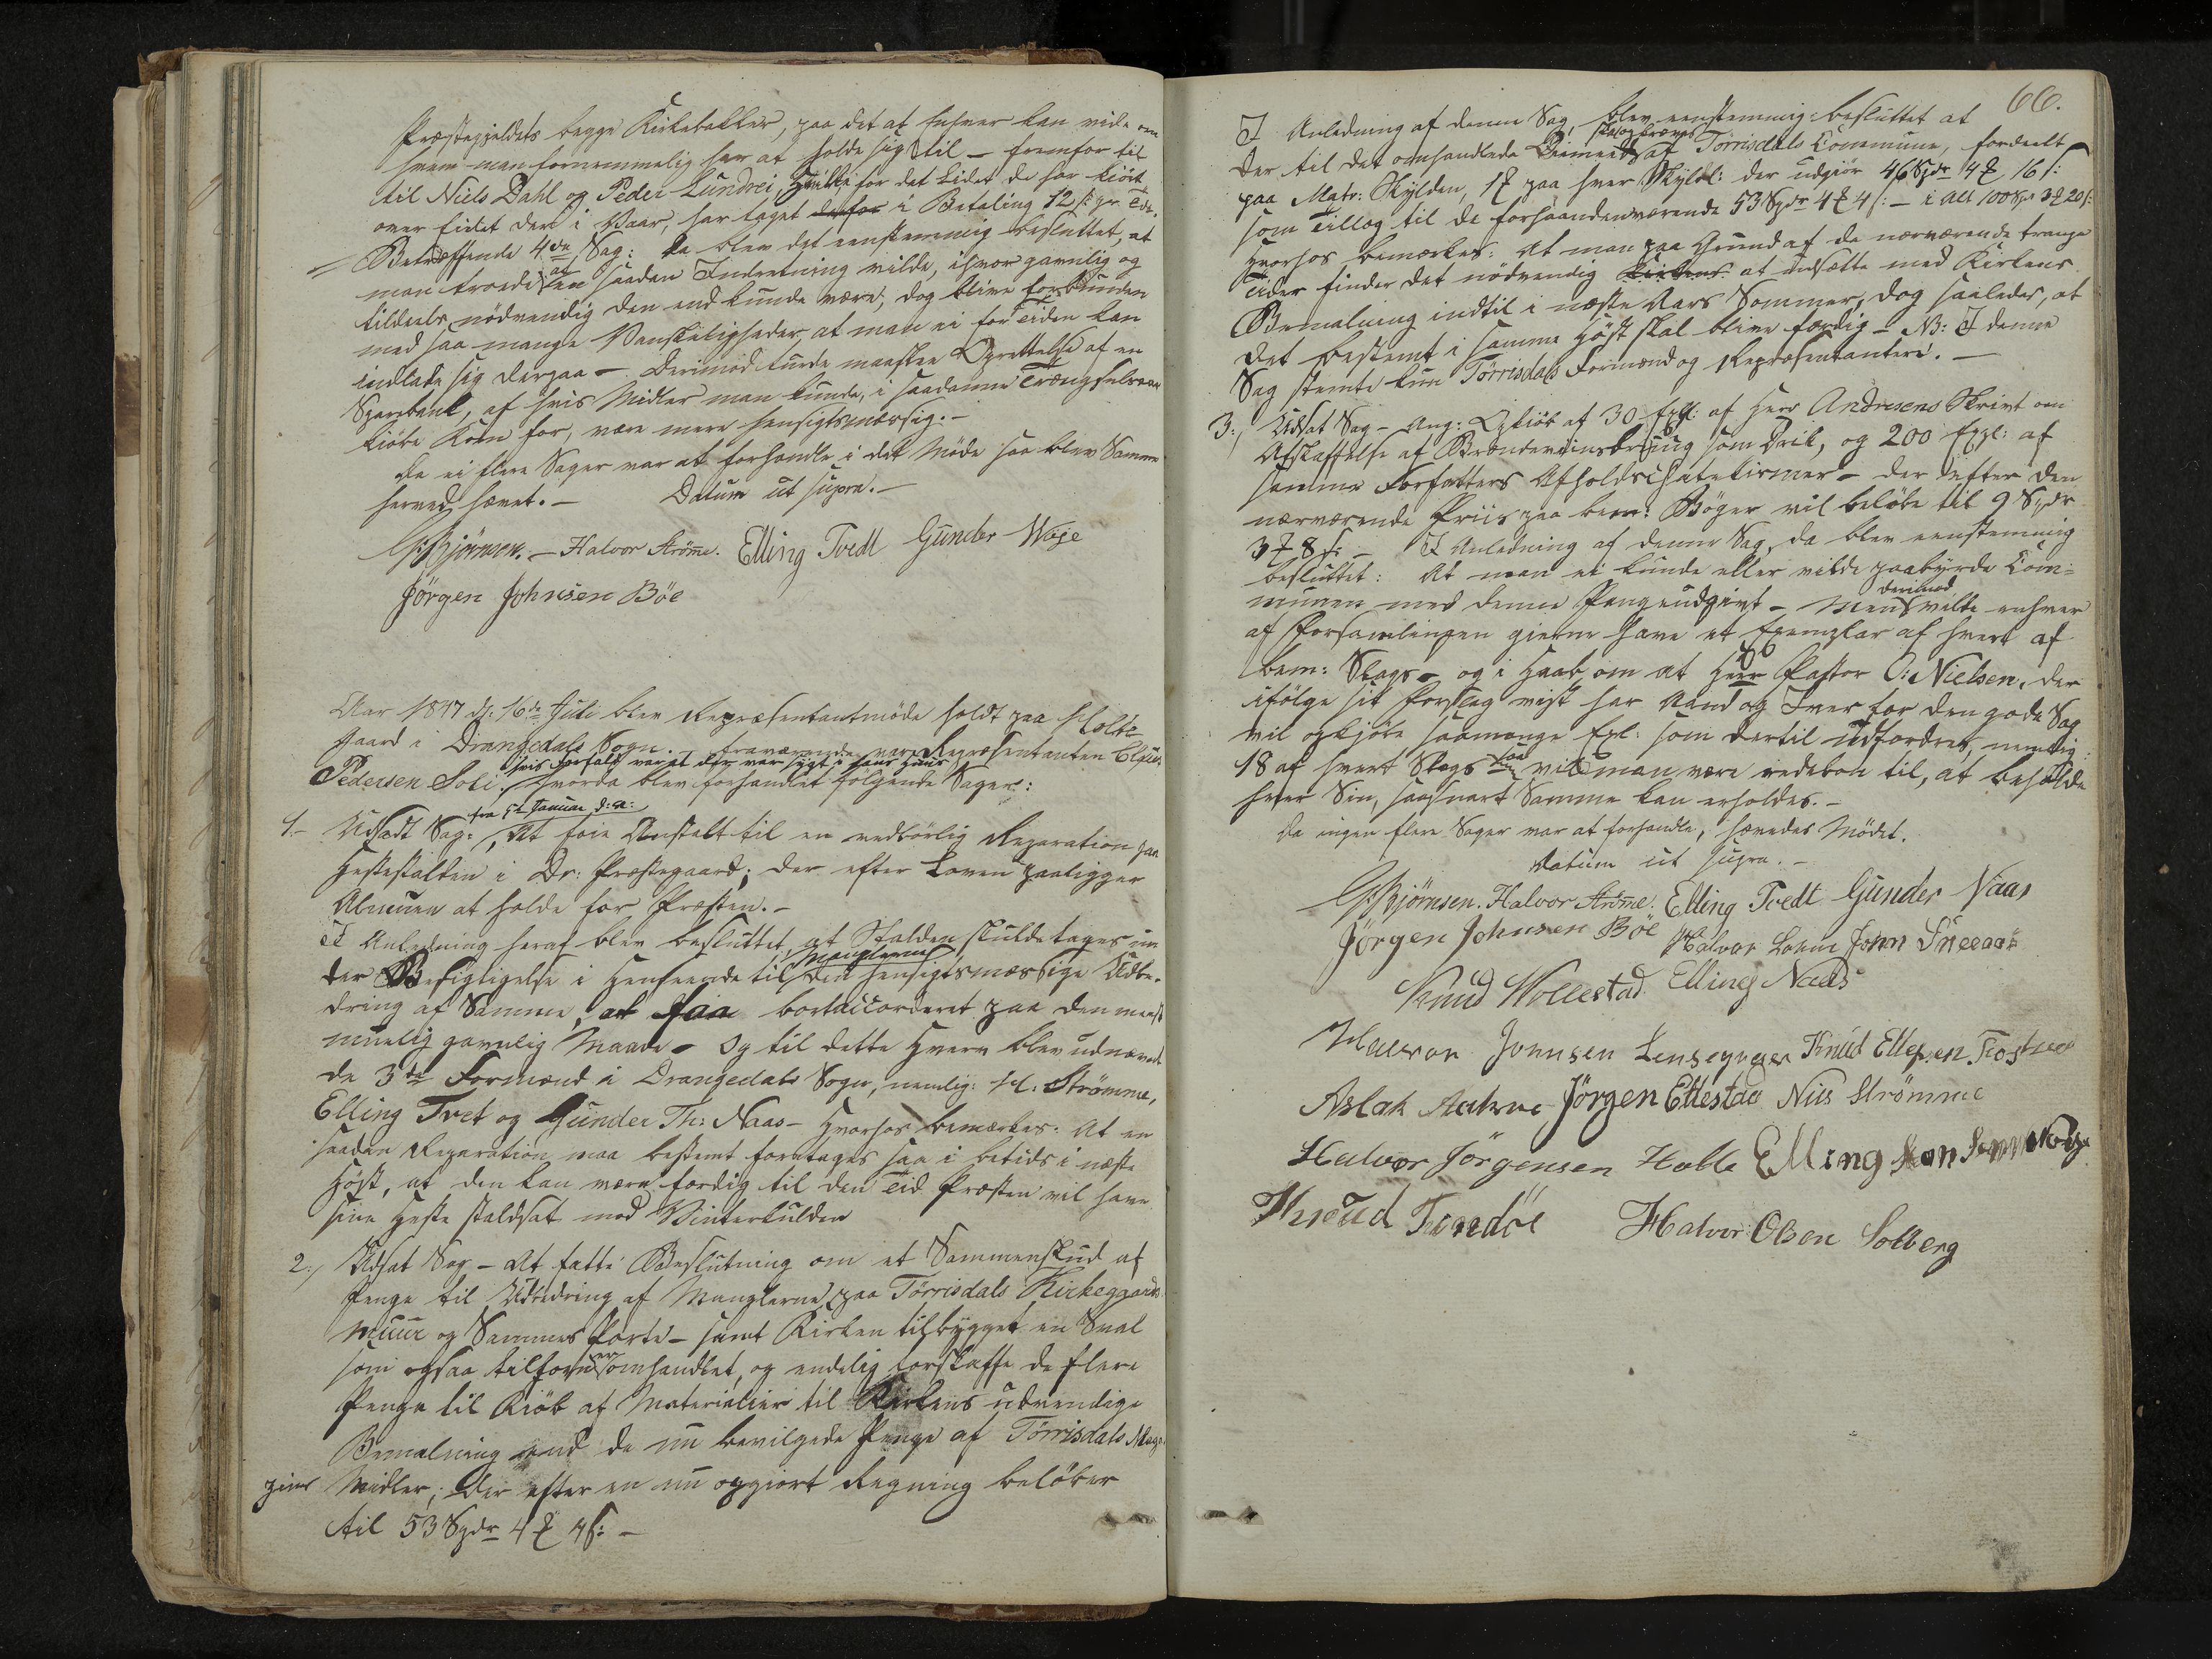 Præstegjeldets begge Kirkebakker, paa det at enhver kan vide om
hvem man fornemmelig har at holde sig til – fremfor til
til Niels Dahl og Peder Lundrei, hvilke for det Lidet de har kiört
over Fielet der i Vaar, har taget derfor i Betaling 12 s: pr. Tde.
Betræffende 4de Sag: da blev det eenstemmig besluttet, at
man troede at en saadan Indretning vilde, ihvor gavnlig og
tildeels nödvendig den end kunde være, dog blive forbunden
med saa mange Vanskeligheder, at man ei for Tiden kan
indlade sig derpaa – Derimod turde maaskee Oprettelse af en
Sparebank, af hvis Midler man kunde, i saadanne Trængselsaar
kiöbe Korn for, være mere hensigtsmæssig. –
Da ei flere Sager var at forhandle i det Möde saa blev Samme
herved hævet. – Datum ut supra. –
G. Björnsen. – Halvor Strömme. Elling Tvedt Gunder Waje
Jörgen Johnsen Böe
Aar 1847 d: 16de Juli blev Repræsentantmöde holdt paa Holte
Gaard i Drangedals Sogn. – fraværende var Repræsentanten
hvis Forfald var at der var sygt i hans Huus
Pedersen Soli. hvorda blev forhandlet fölgende Sager:
fra 5te Januar d: A:
1. – Udsadt Sag: At föie Anstalt til en vedbörlig Reparation paa
Hestestalden i Dr: Præstegaard; der efter Loven paaligger
Almuen at holde for Præsten. –
I Anledning heraf blev besluttet, at Stalden skulde tages un
Manglerne
der Besigtigelse i Henseende til den hensigtsmæssige Udbe-
dring af Samme, at faa bortaccorderet paa den meest
muelig gavnlig Maade – Og til dette Hverv blev udnævnt
de 3de Formænd i Drangedals Sogn, nemlig: H. Strömme,
Elling Tvet og Gunder Th: Naas – Hvorhos bemærkes: At en
saadan Reparation maa bestemt foretages saa i betids i næste
Höst, at den kan være færdig til den Tid Præsten vil have
sine Heste staldsat mod Vinterkulden
2:/ Udsat Sag – At fatte Beslutning om et Sammenskud af
Penge til Udbedring af Manglerne paa Törrisdals Kirkegaards
Muur og Sammes Porte – samt Kirken tilbygget en Sval
som ogsaa tilforn er omhandlet, og endelig forskaffe de flere
Penge til Kiöb af Materialier til Kirkens udvendige
Bemalning end de nu bevilgede Penge af Törrisdals Maga
zins Midler; der efter en nu opgiort Regning belöber
til 53 Spdr 4 ₰ 4 s: –
66.
I Anledning af denne Sag, blev eenstemmig besluttet at
der til det omhandlede Öiemeed af Törrisdals Commune, fordeelt
paa Matr: Skylden, 1 ₰ paa hver Skyldd: der udgiör 46 Spdr 4 ₰ 16 s:
som Tillæg til de forhaandenværende 53 Spdr 4 ₰ 4 s: – i Alt 100 Spd 3 ₰ 20 s:
hvorhos bemærkes: At man paa Grund af de nærværende trange
Tider finder det nödvendig Kirkens at udsætte med Kirkens
Bemalning indtil i næste Aars Sommer, dog saaledes, at
det bestemt i samme Höst skal blive færdig – NB: I denne
Sag stemte kun Törrisdals Formænd og Repræsentantere. –
3:/ Udsat Sag – Ang: Opkiöb af 30 Expl: af Herr Andresens Skrivt om
Afskaffelse af Brændeviinsbrug som Drik, og 200 Expl: af
samme Forfatters Afholdschatekismer – der efter den
nærværende Priis paa bem: Böger vil belöbe til 9 Spdr
3 ₰ 8 s: – I Anledning af denne Sag, da blev eenstemmig
besluttet: At man ei kunde eller vilde paabyrde Com-
derimod
munen med denne Pengeudgivt – Men vilde enhver
af Forsamlingen gierne have et Exemplar af hvert af
bem: Slags – og i Haab om at Herr Pastor O: Nielsen, der
ifölge sit Forslag vist har Aand og Iver for den gode Sag
vil opkjöbe saamange Expl: som dertil udfordres, nemlig:
18 af hvert Slags saa vil man være redebon til, at beholde
hver Sin, saasnart Samme kan erholdes. –
Da ingen flere Sager var at forhandle, hævedes Mödet.
Datum ut supra. –
G. Björnsen. Halvor Strömme. Elling Tvedt Gunder Naas
Jörgen Johnsen Böe Halvor John
Knud Wollestad Elling Naas
Halvor Jonnsen Knud Ellefsen
Aslak Jörgen Ettestad Nils Strömme
Halvor Jörgensen Holte Elling
Knud Halvor Olsen Solberg